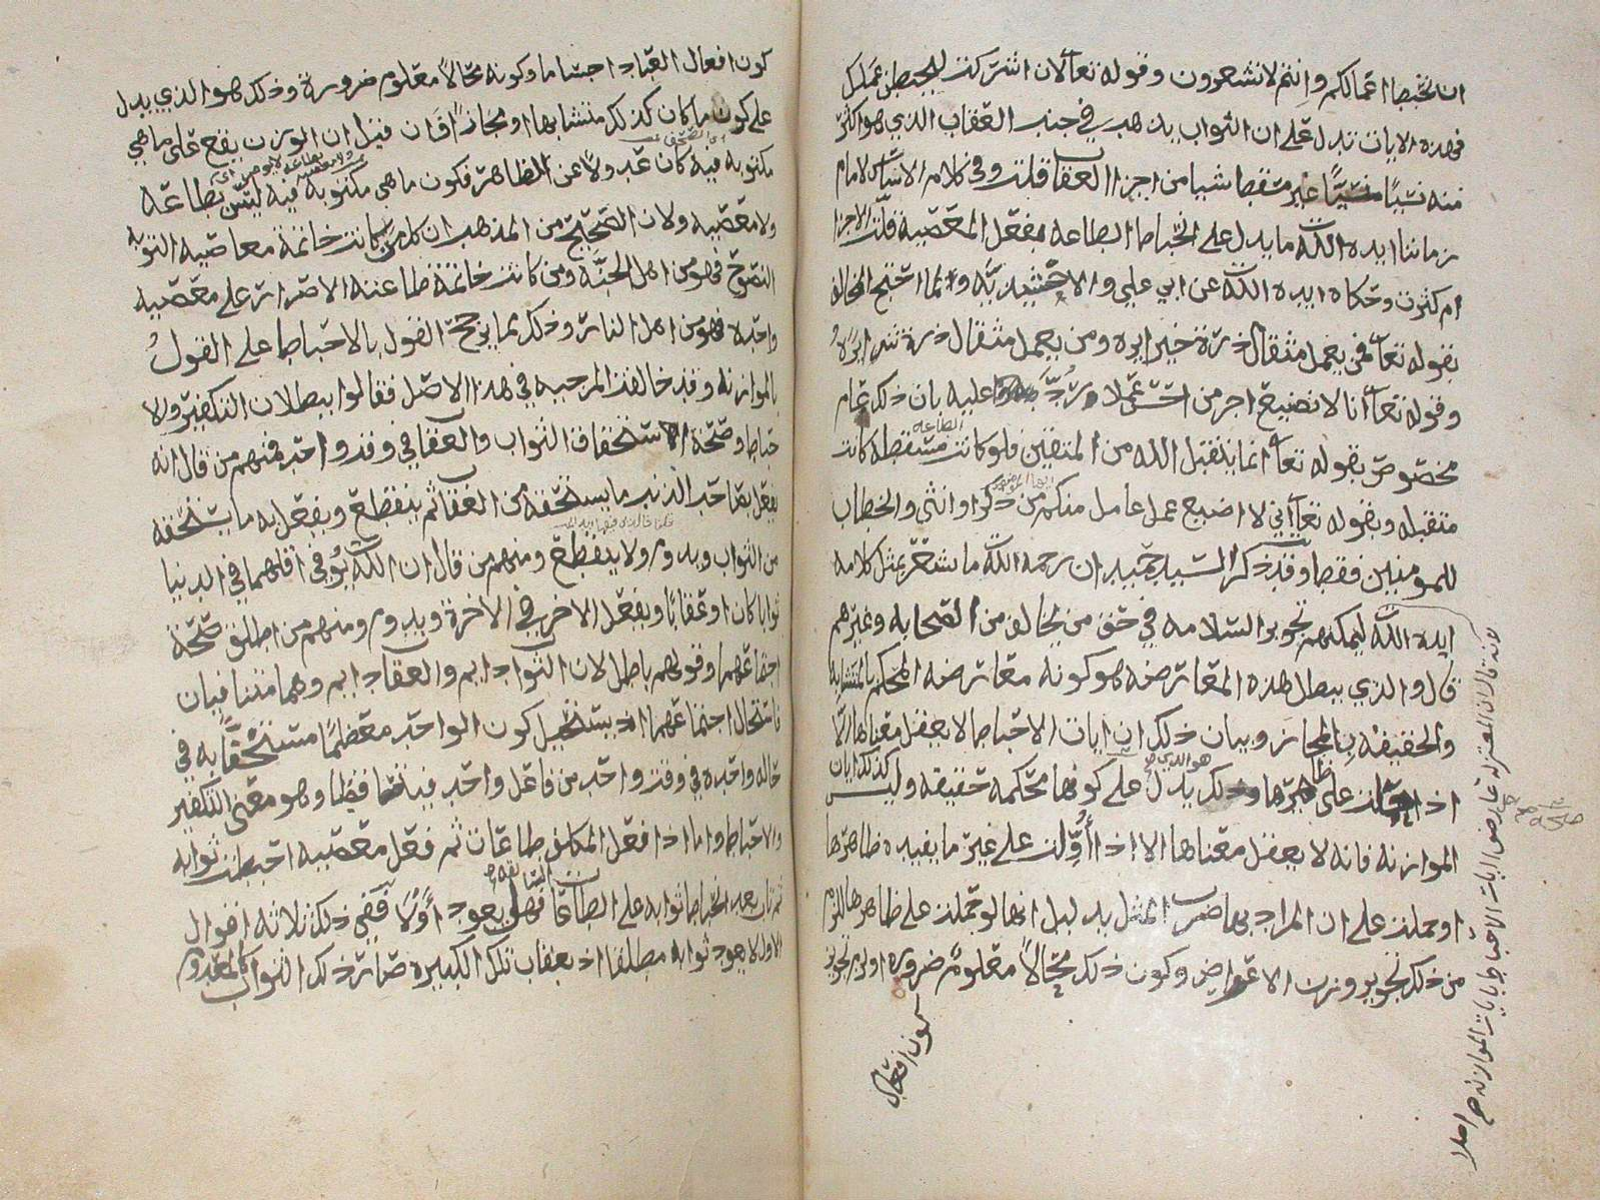 ان تحبط اعمالكم وانتم لا تشعرون وقوله تعالى لان اشركت ليحبطن عملك
فهذه الايات تدل على ان الثواب يذهب في جنب العقاب الذي هو اكثر
منه نسيا منسيا غير مسقط شيا من اجزا العقاب قلت وفي كلام الامام
زماننا ايده الله ما يدل على انحباط الطاعه بفعل المعصيه قلت الاجزا
ام كثرت وحكاه ايده الله عن ابي علي والاخشيديه وانما احتج المخالف
بقوله تعالى فمن يعمل مثقال ذرة خيرا يره ومن يعمل مثقال ذرة شرا يره
وقوله تعالى انا لا نضيع اجر من احسن عملا ورد عليه بان ذلك عام
مخصوص بقوله تعالى انما يتقبل الله من المتقين فلو كانت الطاعه مسقطة كانت
متقبله وبقوله تعالى اني لا اضيع عمل عامل منكم من ذكر او انثى والخطاب
للمومنين فقط وقد ذكر السيد حميدان رحمه الله ما يشعر بمثل كلامه
ايده الله ليمكنهم تجويز السلامه في حق من يخالف من الصحابه وغيرهم
قال والذي يبطل هذه المعارضه هو كونه معارضه المحكم بالمتشابه
والحقيقه بالمجاز وبيان ذلك ان ايات الاحباط لا يعقل معناها الا
اذا حملت على ظاهرها وذلك هو الذي يدل على كونها محكمه حقيقه وليس كذلك ايات
الموازنه فانه لا يعقل معناها الا اذا أُوّلت على غير ما يفيده ظاهرها
او حملت على ان المراد بها ضرب المثل بدليل انها لو حملت على ظاهرها للزم
من ذلك تجويز وزن الاعراض وكون ذلك محالا معلوم ضرورة او لزم تجويز
كون افعال
لانه قال ان المعتزله عارض ايات الاحباط بايات الموازنه صح اصلا
كون افعال العباد اجساما وكونه محالا معلوم ضرورة وذلك هو الذي يدل
على كون ما كان كذلك متشابها او مجازا فان قيل ان الوزن يقع على ما هي
مكتوبه فيه كان عدولا عن الظاهر فكون ما هي مكتوبه فيه ليس بطاعة
ولا معصيه ولان الصحيح من المذهب ان كل من كانت خاتمة معاصيه التوبه
النصوح فهو من اهل الجنه ومن كانت خاتمة طاعته الاصرار على معصيه
واحده فهو من اهل النار وذلك مما يرجح القول بالاحباط على القول
بالموازنه وقد خالف المرجيه في هذا الاصل فقالوا ببطلان التكفير والا
حباط وصحة استحقاق الثواب والعقاب في وقت واحد فمنهم من قال انه
يفعل بصاحب الذنب ما يستحقه من العقاب ثم ينقطع ويفعل به ما يستحقه
من الثواب ويدوم ولا ينقطع ومنهم من قال ان الله يوفي اقلهما في الدنيا
ثوابا كان او عقابا ويفعل الاخر في الاخرة ويدوم ومنهم من اطلق صحة
اجتماعهما وقولهم باطل لان الثواب دايم والعقاب دايم وهما متنافيان
فاستحال اجتماعهما اذ يستحيل كون الواحد معظما مستخفا به في
حاله واحده في وقت واحد من فاعل واحد فيتناقضا وهو معنى التكفير
والاحباط واما اذا فعل المكلف طاعات ثم فعل معصيه احبطت ثوابه
ثم تاب بعد انحباط ثوابه على الطاعات السابقه فهل يعود أو لا ففي ذلك ثلاثه اقوال
الاول لا يعود ثوابه مطلقا اذ بعقاب تلك الكبيره صار ذلك الثواب كالمعدوم